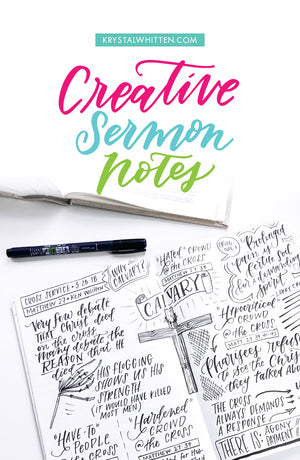 KRYSTALWHITTEN.COM
Creative
Sermon
Notes
CROSS SERVICE • 3·28·18
MATTHEW 27 • KEN WHITTEN
Very few debate
THAT Christ died
on the cross.
Many debate the
REASON that HE
died
WHY
CALVARY?
HIS FLOGGING
SHOWS US HIS
STRENGTH
(IT WOULD HAVE KILLED
MOST MEN)
"HAVE-TO"
PEOPLE
@ the CROSS
"Hated" CROWD
@ the CROSS
MATTHEW 27
CALVARY!
"Hardened"
CROWD
@ the CROSS
Prolonged
Hypocritical
CROWD
@ the CROSS
MATTHEW 27
Pharisees refuse
TO See the Christ
they talked about
THE CROSS
ALWAYS DEMANDS
A RESPONSE
THERE IS:
AGONY